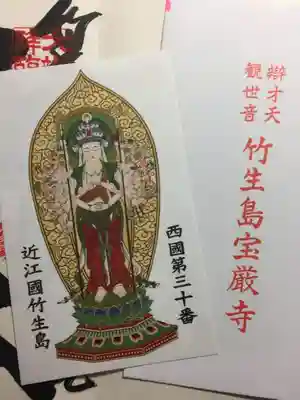 辯才天
観世音
竹生島宝厳寺
西國第三十番
近江國竹生島